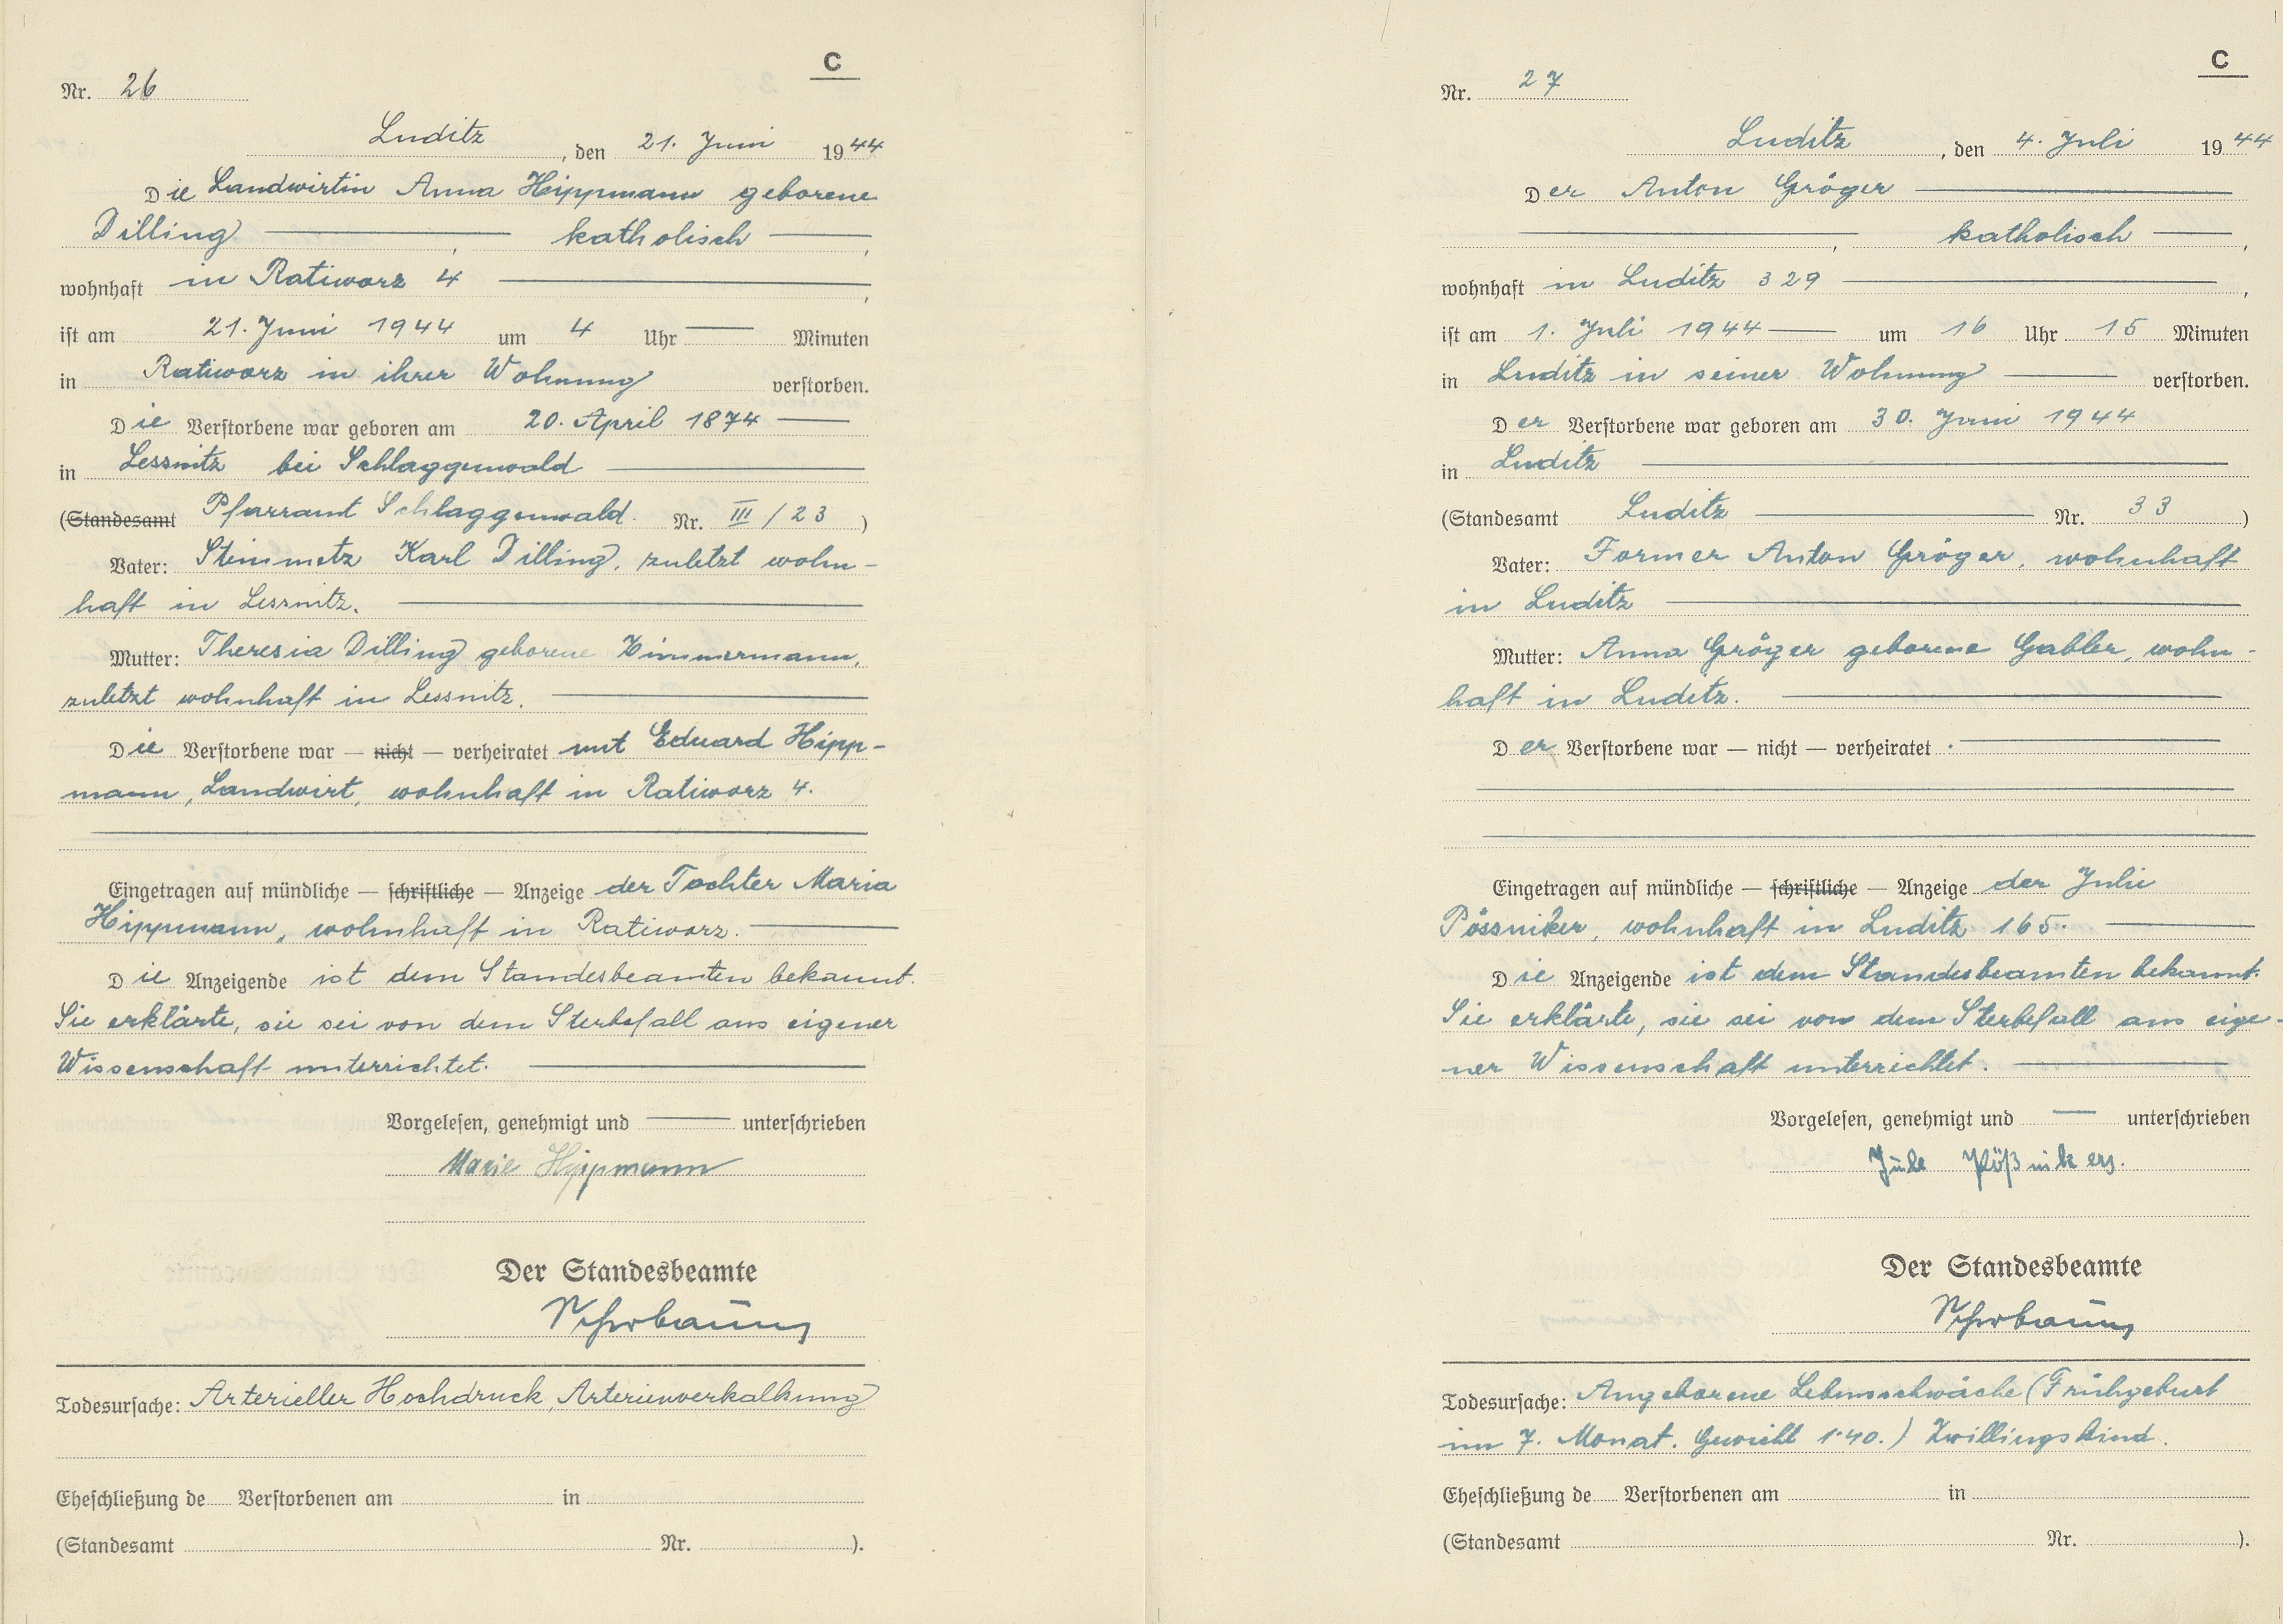 C
Nr. 26
Luditz, den 21. Juni 1944
Die Landwirtin Anna Hippmann geborene
Dilling, katholisch,
wohnhaft in Ratiworz 4,
ist am 21. Juni 1944 um 4 Uhr Minuten
in Ratiworz in ihrer Wohnung verstorben.
Die Verstorbene war geboren am 20. April 1874
in Lessnitz bei Schlaggenwald
(Standesamt Pfarramt Schlaggenwald. Nr. III/23)
Vater: Steinmetz Karl Dilling, zuletzt wohn-
haft in Lessnitz.
Mutter: Theresia Dilling geborene Zimmermann,
zuletzt wohnhaft in Lessnitz.
Die Verstorbene war — nicht — verheiratet mit Eduard Hipp-
mann, Landwirt, wohnhaft in Ratiworz 4.
Eingetragen auf mündliche — schriftliche — Anzeige der Tochter Maria
Hippmann, wohnhaft in Ratiworz.
Die Anzeigende ist dem Standesbeamten bekannt.
Sie erklärte, sie sei von dem Sterbefall aus eigener
Wissenschaft unterrichtet.
Vorgelesen, genehmigt und unterschrieben
Marie Hippmann
Der Standesbeamte
Todesursache: Arterieller Hochdruck, Arterienverkalkung
Eheschließung de Verstorbenen am in
(Standesamt Nr. ).
C
Nr. 27
Luditz, den 4. Juli 1944
Der Anton Gröger
, katholisch,
wohnhaft in Luditz 329,
ist am 1. Juli 1944 um 16 Uhr 15 Minuten
in Luditz in seiner Wohnung verstorben.
Der Verstorbene war geboren am 30. Juni 1944
in Luditz
(Standesamt Luditz Nr. 33)
Vater: Former Anton Gröger, wohnhaft
in Luditz
Mutter: Anna Gröger geborene Gabler, wohn-
haft in Luditz.
Der Verstorbene war — nicht — verheiratet.
Eingetragen auf mündliche — schriftliche — Anzeige der Julie
Pössniker, wohnhaft in Luditz 165.
Die Anzeigende ist dem Standesbeamten bekannt.
Sie erklärte, sie sei von dem Sterbefall aus eige-
ner Wissenschaft unterrichtet.
Vorgelesen, genehmigt und unterschrieben
Der Standesbeamte
Todesursache: Angeborene Lebensschwäche (Frühgeburt
im 7. Monat. Gewicht 1·40.) Zwillingskind.
Eheschließung de Verstorbenen am in
(Standesamt Nr. ).